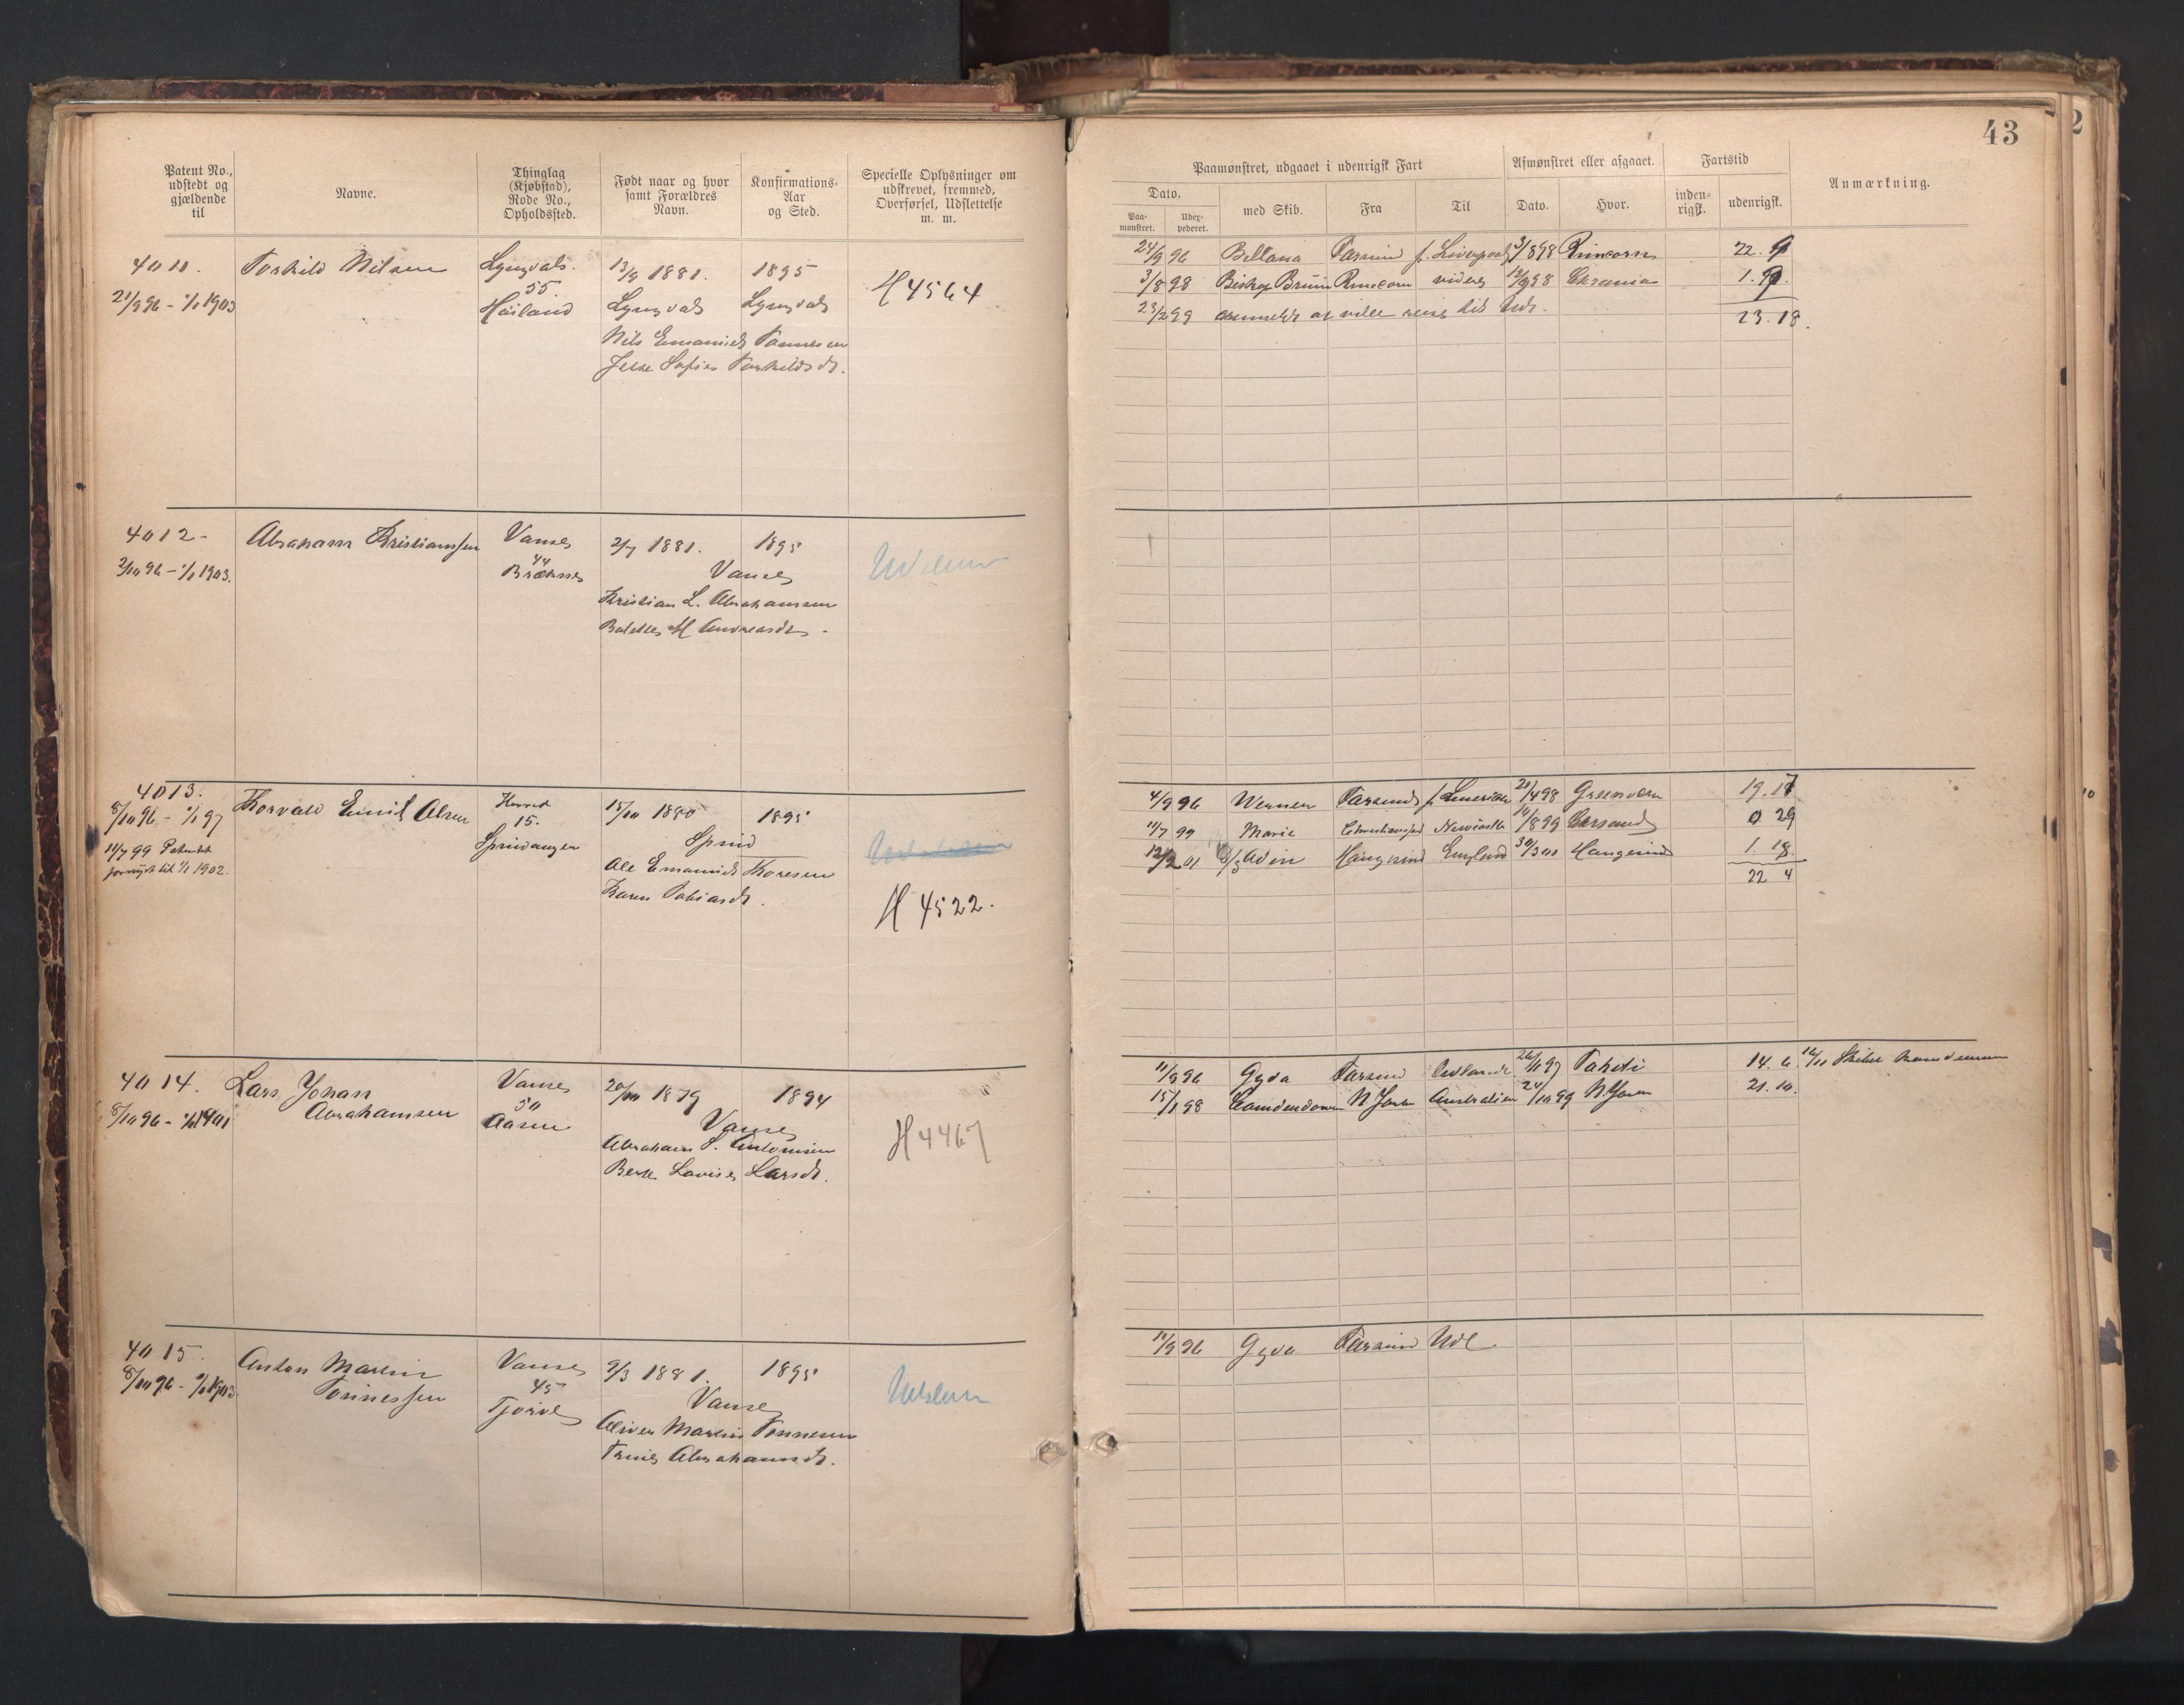 43
Patent No., udstedt og gjældende til
Navne.
Thinglag (Kjøbstad), Rode No., Opholdssted.
Født naar og hvor samt Forældres Navn.
Konfirmations-Aar og Sted.
Specielle Oplysninger om udskrevet, fremmed, Overførsel, Udslettelse m. m.
Paamønstret, udgaaet i udenrigsk Fart
Afmønstret eller afgaaet.
Fartstid
Anmærkning.
Dato.
Paa-mønstret.
med Skib.
Fra
Til
Dato.
Hvor.
inden-rigsk.
udenrigsk.
4011.
21/9 96 - 1/1 1903
Torkild Nilsen
Lyngdals.
55
Høiland
13/9 1881.
Lyngdal
Nils Emanuels Tønnesen
Sofies Torkildsdt.
1895
Lyngdal
H 4564
24/9 96 Farsund f. Liverpool 3/8 98 Runcorn 22. 9
3/8 98 Bishop Bruun Runcorn videre 12/9 98 1. 9
23/2 99 anmeldt at ville reise til Udl.
23. 18.
4012-
2/10 96 - 1/1 1903.
Abraham Kristianssen
Vanse
44
2/7 1881.
Vanse
Kristian L. Abrahamsen
M Andreasdt.
1895
4013.
8/10 96 - 1/1 97
11/7 99 Patentet fornyet til 1/1 1902.
Thorvald Emil Olsen
Herred
15.
Spindangen
15/10 1880
Spind
Ole Emanuel Thoresen
Karen Tobiasdt.
1895
H 4522.
4/9 96 Werner Farsund 21/4 98 19. 17
11/7 99 Marie Newcastle /8 99 0 29
12/2 01 Haugesund England 30/3 01 Haugesund 1. 18.
22 4
4014.
8/10 96 - 1/1 1901
Lars Johan Abrahamsen
Vanse
50
Aasen
20/10 1879
Vanse
Abraham S. Antonisen
Lovise Larsdt.
1894
H 4467
11/9 96 Gyda Farsund Udlandet 26/11 97 Tahiti 14. 6.
15/1 98 N York Australien 24/10 99 N. York 21. 10.
4015.
8/10 96 - 1/1 1903.
Anton Martin Tønnessen
Vanse
45
Tjørve
9/3 1881.
Vanse
Martin Tønnesen
Abrahamsdt.
1895
11/9 96 Gyda Farsund Udl.